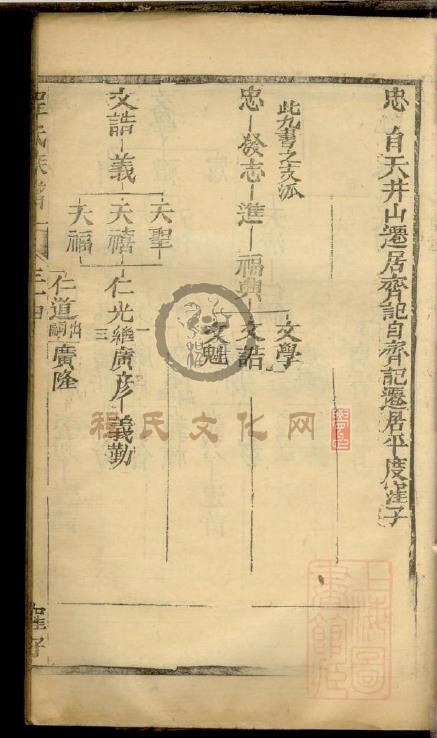 忠 自天井山遷居齊記自齊記遷居平度窪子
此九書之支派
忠 發志 進 福興
文學
文誥
文魁
文誥 義
天聖
天禧
天福
仁光 繼 廣彥 義勤
一
三
仁道 嗣 廣隆
程氏族譜
窪子
程氏文化网
上海圖書館藏